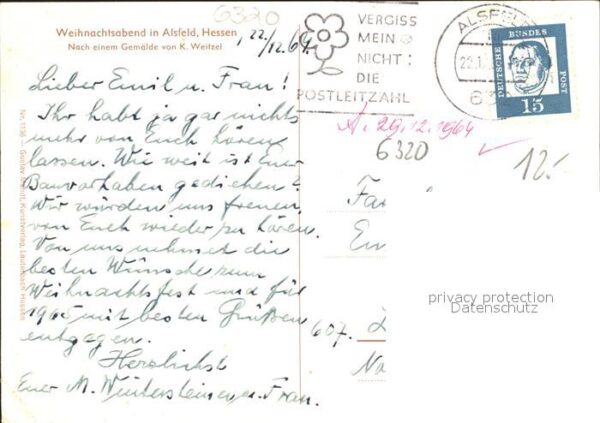 6320
Weihnachtsabend in Alsfeld, Hessen
Nach einem Gemälde von K. Weitzel
22/12.64.
VERGISS
MEIN
NICHT:
DIE
POSTLEITZAHL
ALSFELD
22.1
DEUTSCHE BUNDESPOST
15
Lieber Emil u. Frau!
Ihr habt ja gar nichts
mehr von Euch hören
lassen. Wie weit ist Euer
Bauvorhaben gediehen?
Wir würden uns freuen,
von Euch wieder zu hören.
Von uns nehmet die
besten Wünsche zum
Weihnachtsfest und für
1965 mit besten Grüßen
entgegen.
Herzlichst
Euer M. Wintersteiner u. Frau.
A. 29.12.1964
6320
12.-
Fa
En
607.
No
privacy protection
Datenschutz